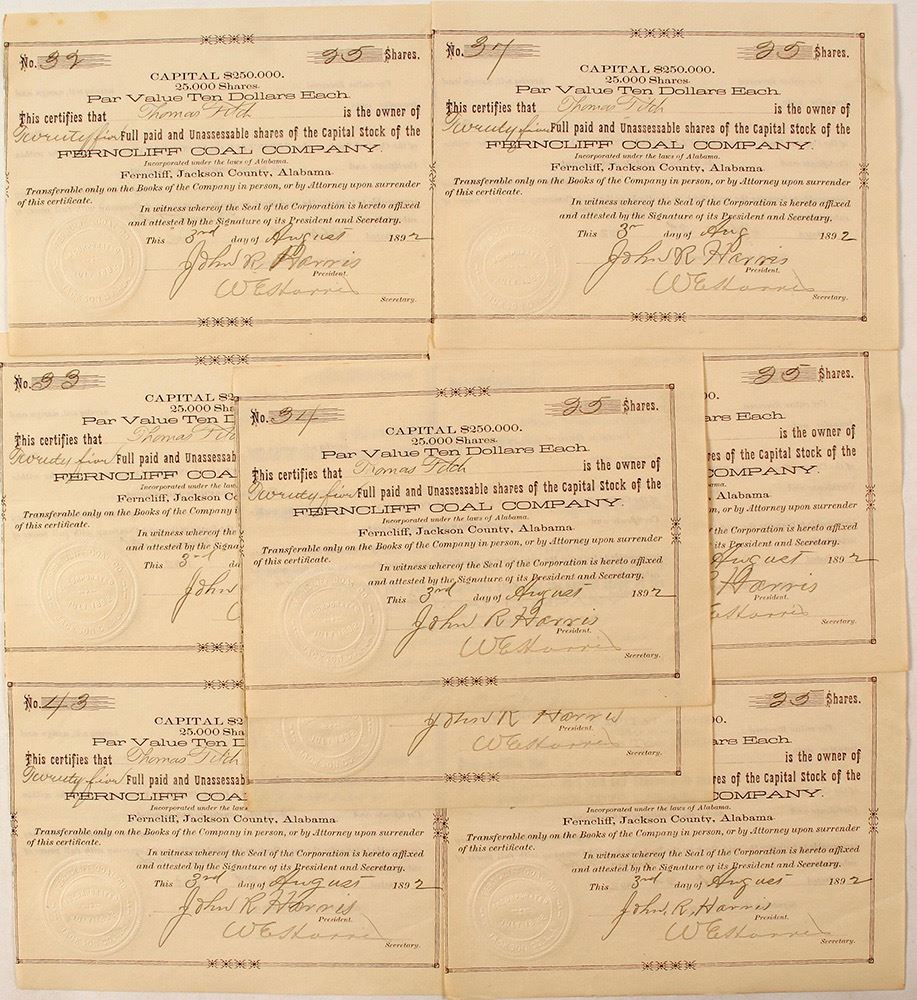 No. 32 25 Shares.
CAPITAL $250.000.
25.000 Shares.
Par Value Ten Dollars Each.
This certifies that Thomas Fitch is the owner of
Twenty five Full paid and Unassessable shares of the Capital Stock of the
FERNCLIFF COAL COMPANY.
Incorporated under the laws of Alabama.
Ferncliff, Jackson County, Alabama.
Transferable only on the Books of the Company in person, or by Attorney upon surrender
of this certificate.
In witness whereof the Seal of the Corporation is hereto affixed
and attested by the Signature of its President and Secretary.
This 3rd day of August 1892
John R. Harris
President.
W E Harris
Secretary.
No. 37 25 Shares.
CAPITAL $250.000.
25.000 Shares.
Par Value Ten Dollars Each.
This certifies that Thomas Fitch is the owner of
Twenty five Full paid and Unassessable shares of the Capital Stock of the
FERNCLIFF COAL COMPANY.
Incorporated under the laws of Alabama.
Ferncliff, Jackson County, Alabama.
Transferable only on the Books of the Company in person, or by Attorney upon surrender
of this certificate.
In witness whereof the Seal of the Corporation is hereto affixed
and attested by the Signature of its President and Secretary.
This 3 day of Aug 1892
John R Harris
President.
W E Harris
Secretary.
No. 33
CAPITAL $2
25.000 Sha
Par Value Ten D
This certifies that Thomas Fitch
Twenty five Full paid and Unassessab
FERNCLIFF COA
Incorporated under the law
Ferncliff, Jackson Co
Transferable only on the Books of the Company i
of this certificate.
In witness whereof the
and attested by the Signa
This 3rd da
John
No. 34 25 Shares.
CAPITAL $250.000.
25.000 Shares.
Par Value Ten Dollars Each.
This certifies that Thomas Fitch is the owner of
Twenty five Full paid and Unassessable shares of the Capital Stock of the
FERNCLIFF COAL COMPANY.
Incorporated under the laws of Alabama.
Ferncliff, Jackson County, Alabama.
Transferable only on the Books of the Company in person, or by Attorney upon surrender
of this certificate.
In witness whereof the Seal of the Corporation is hereto affixed
and attested by the Signature of its President and Secretary.
This 3rd day of August 1892
John R Harris
President.
W E Harris
Secretary.
25 Shares.
0.
rs Each.
is the owner of
res of the Capital Stock of the
OMPANY.
ma.
Alabama.
n, or by Attorney upon surrender
the Corporation is hereto affixed
its President and Secretary.
August 1892
Harris
President.
E Harris
Secretary.
John R Harris
President.
W E Harris
Secretary.
No. 43
CAPITAL $2
25.000 Sha
Par Value Ten D
This certifies that Thomas Fitch
Twenty five Full paid and Unassessab
FERNCLIFF COA
Incorporated under the laws
Ferncliff, Jackson County, Alabama.
Transferable only on the Books of the Company in person, or by Attorney upon surrender
of this certificate.
In witness whereof the Seal of the Corporation is hereto affixed
and attested by the Signature of its President and Secretary.
This 3rd day of August 1892
John R Harris
President.
W E Harris
Secretary.
25 Shares.
0.
rs Each.
is the owner of
res of the Capital Stock of the
COMPANY.
Incorporated under the laws of Alabama.
Ferncliff, Jackson County, Alabama.
Transferable only on the Books of the Company in person, or by Attorney upon surrender
of this certificate.
In witness whereof the Seal of the Corporation is hereto affixed
and attested by the Signature of its President and Secretary.
This 3rd day of August 1892
John. R. Harris
President.
W E Harris
Secretary.